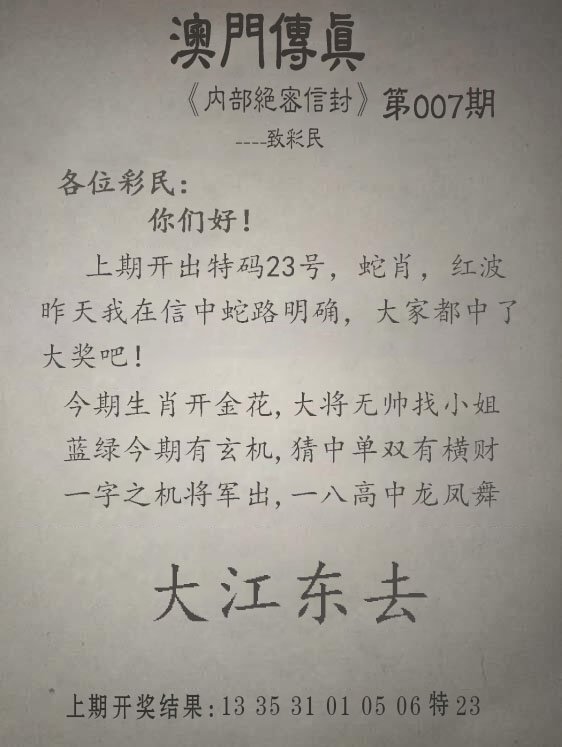 澳門傳眞
《内部絕密信封》第007期
----致彩民
各位彩民:
你们好!
上期开出特码23号，蛇肖，红波
昨天我在信中蛇路明确，大家都中了
大奖吧!
今期生肖开金花,大将无帅找小姐
蓝绿今期有玄机,猜中单双有横财
一字之机将军出,一八高中龙凤舞
大江东去
上期开奖结果:13 35 31 01 05 06 特 23